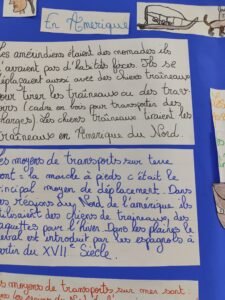 En Amérique
Les amérindiens étaient des nomades ils
n'avaient pas d'habitats fixes. Ils se
déplaçaient aussi avec des chiens traîneaux
pour tirer les traîneaux ou des trav-
(cadre en bois pour transporter des
charges). Les chiens traîneaux tiraient les
traîneaux en Amérique du Nord.
Les moyens de transports sur terre
sont la marche à pieds c'était le
principal moyen de déplacement. Dans
les régions du Nord de l'amérique ils
utilisaient des chiens de traineaux, des
raquettes pour l'hiver. Dans les plaines le
cheval est introduit par les espagnols à
partir du XVIIe Siècle.
Les moyens de transports sur mer sont